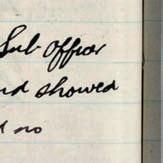 Sub Officer
nd showed
d no